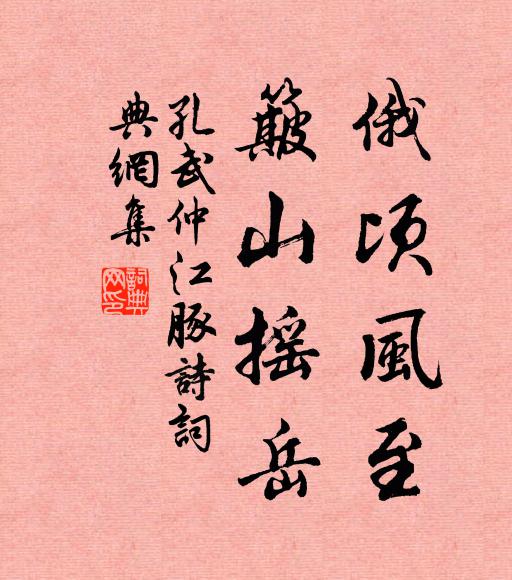 俄頃風至
簸山搖岳
孔武仲江豚詩詞
典網集
詞典
网印